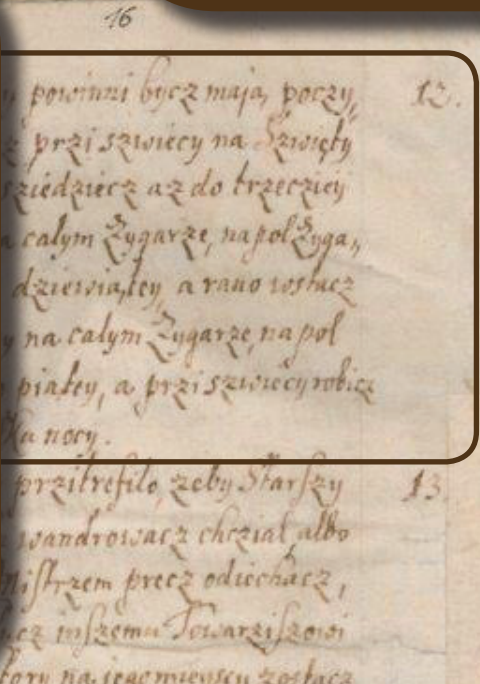 16
powinni bycz maja, poczy, 12.
przi szwiecy na Szwięty
sziedziecz az do trzecziey
calym Zygarze, na pol Zyga,,
dziewiątey, a rano wstacz
na calym Zygarze, na pol
piątey, a przi szwiecy robicz
ku nocy.
przitrefilo, zeby Starszy 13
wandrowacz chczial, albo
Mistrzem precz odiechacz,
inszemu Towarziszowi
na iego mieyscu zostacz